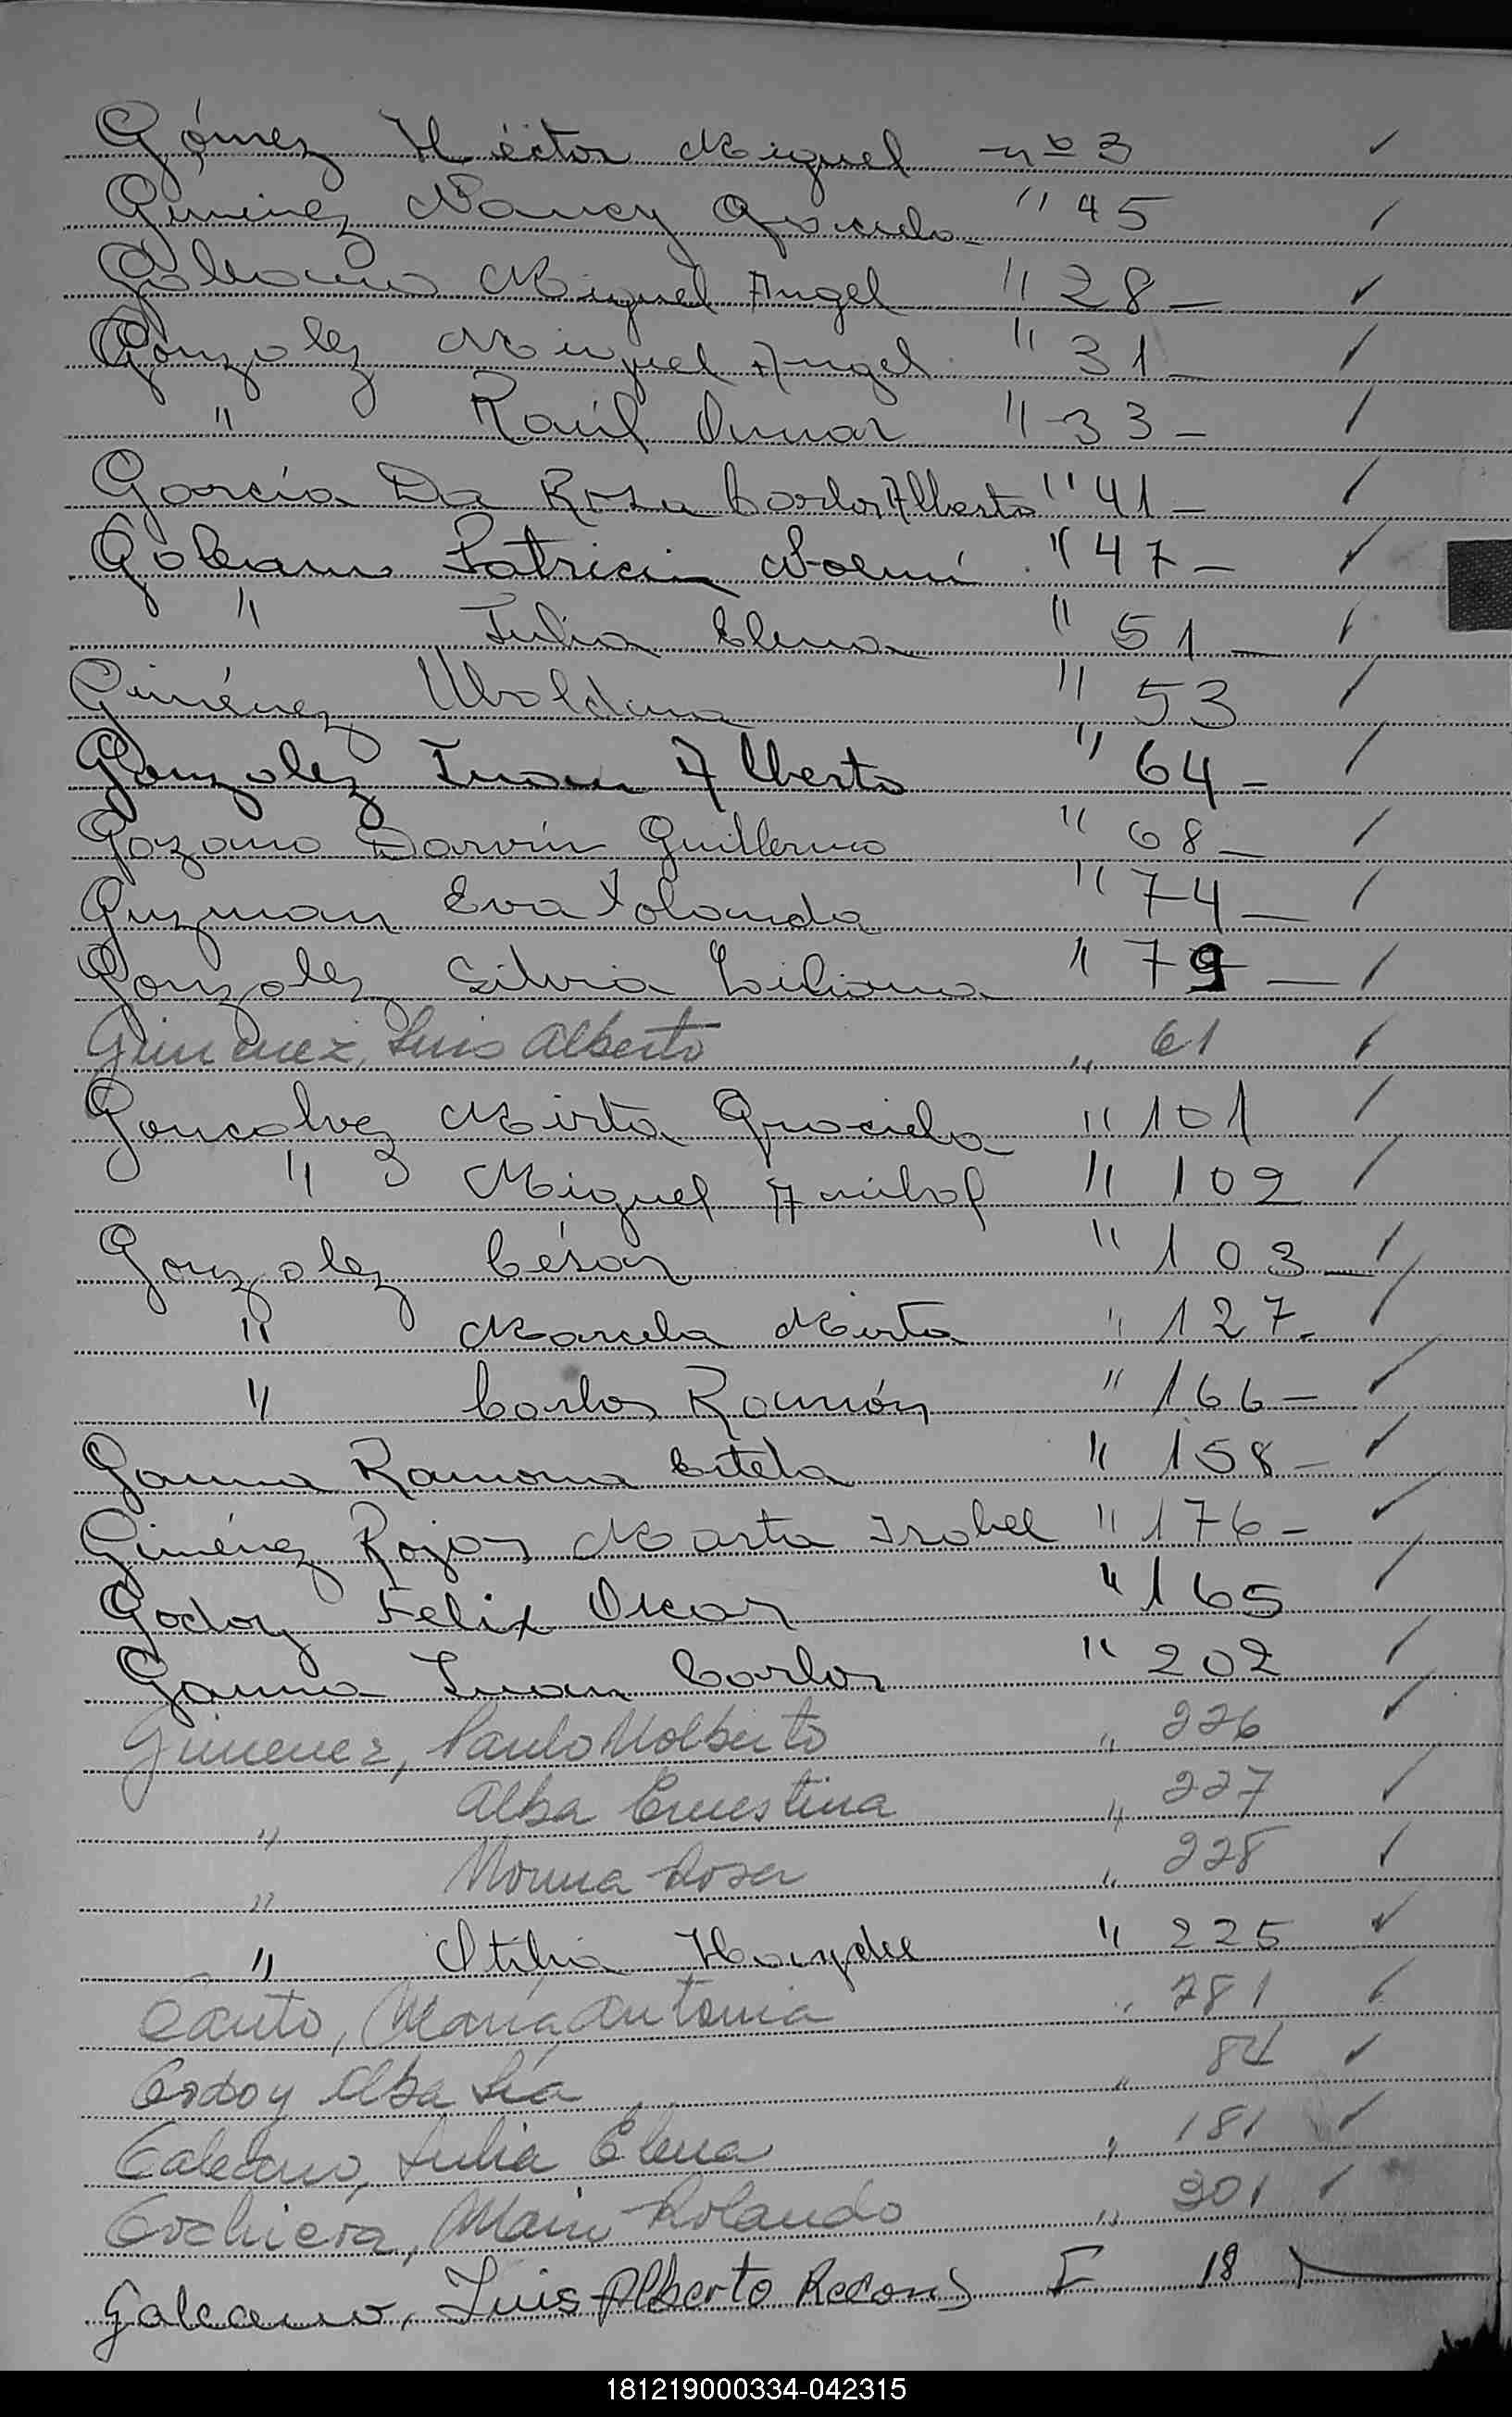 Gómez Héctor Miguel nº 3 ✓
Giminez Nancy Graciela " 45 ✓
Galeano Miguel Angel " 28 — ✓
Gonzalez Miguel Angel " 31 — ✓
" Raúl Omar " 33 — ✓
García Da Rosa Carlos Alberto " 41 — ✓
Galeano Patricia Noemí " 47 — ✓
" Julia Elena " 51 — ✓
Giménez Ubaldina " 53 ✓
Gonzalez Juan Alberto " 64 — ✓
Gozano Darvín Guillermo " 68 — ✓
Guzman Eva Yolanda " 74 — ✓
Gonzalez Silvia Liliana " 79 — ✓
Gimenez, Luis Alberto " 61 ✓
Goncalvez Mirta Graciela " 101 ✓
" Miguel Anibal " 102 ✓
Gonzalez César " 103 — ✓
" Marcela Mirta " 127 - ✓
" Carlos Ramón " 166 — ✓
Gauna Ramona Estela " 158 — ✓
Giménez Rojas Marta Isabel " 176 — ✓
Godoy Felix Oscar " 165 ✓
Gauna Juan Carlos " 202 ✓
Gimenez, Paulo Nolberto " 226 ✓
" Alba Ernestina " 227 ✓
" Norma Rosa " 228 ✓
" Otilia Haydee " 225 ✓
María Antonia " 281 ✓
Godoy Alba Lía " 84 ✓
Galeano, Julia Elena " 181 ✓
Rolando " 301 ✓
Galeano, Luis Alberto 18
181219000334-042315